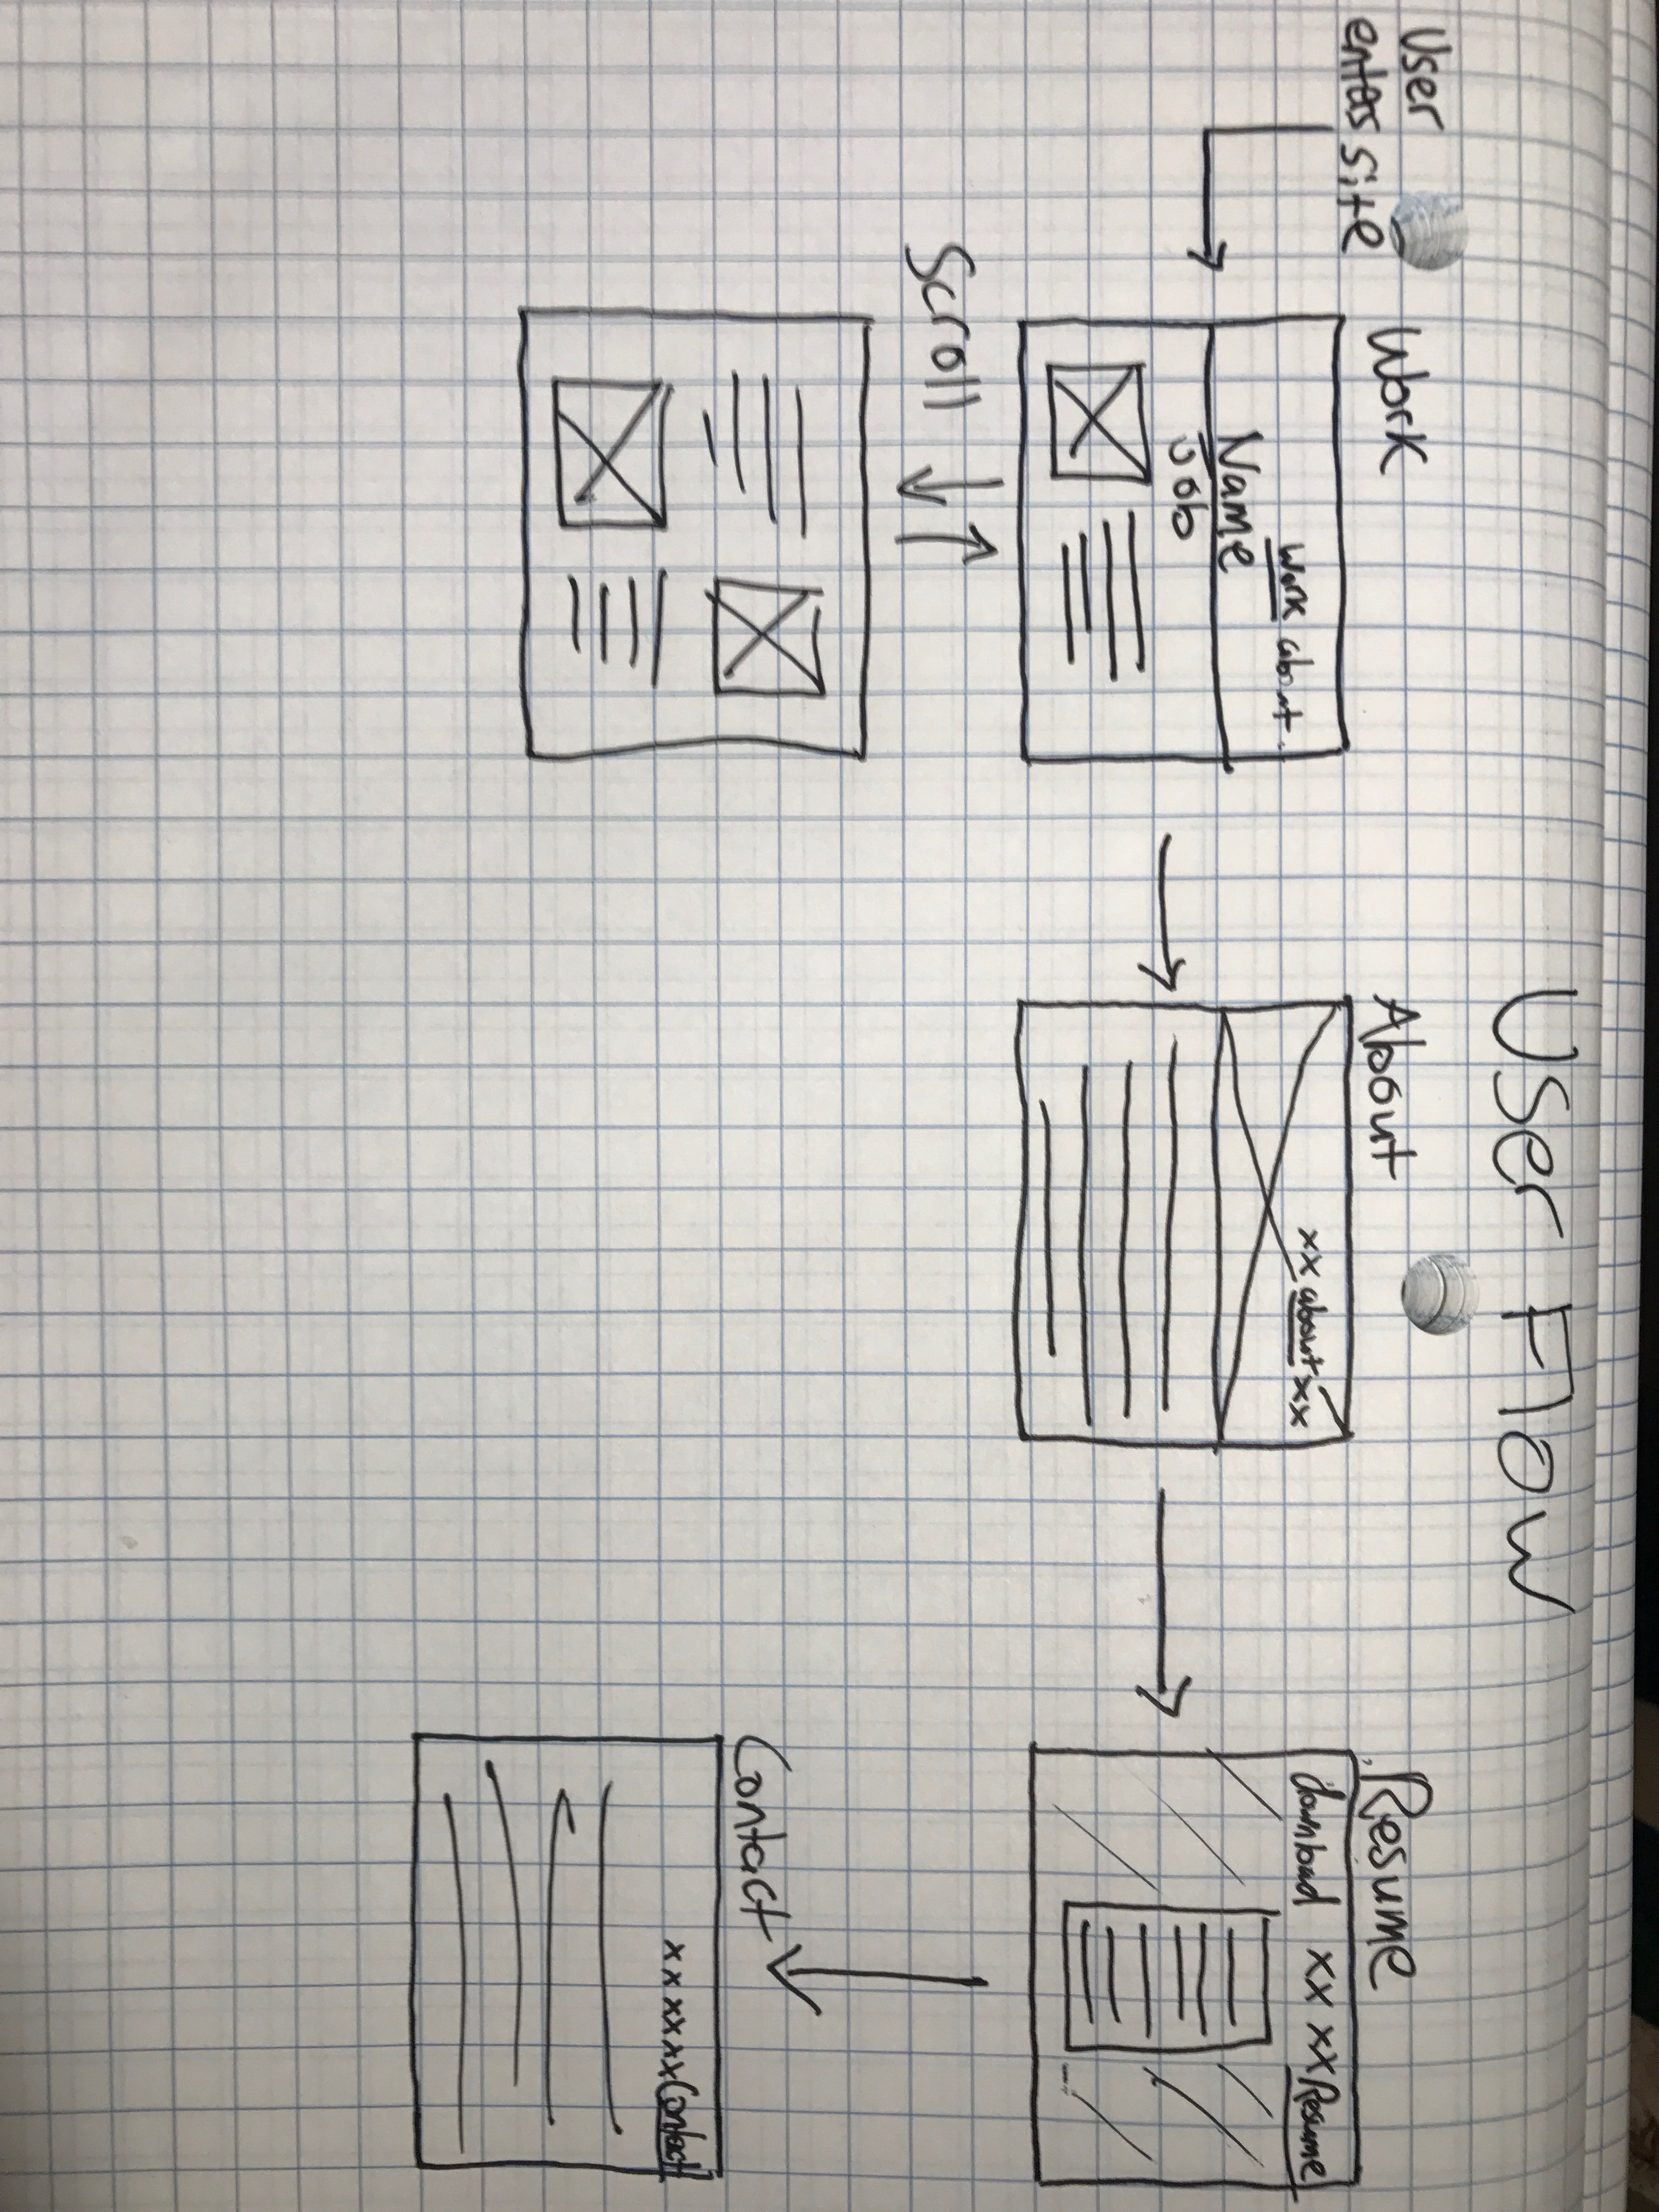 User Flow
User
enters site
Work
work about
Name
Job
Scroll
About
xx about xx
Resume
download xx xx Resume
Contact
xx xx xx Contact